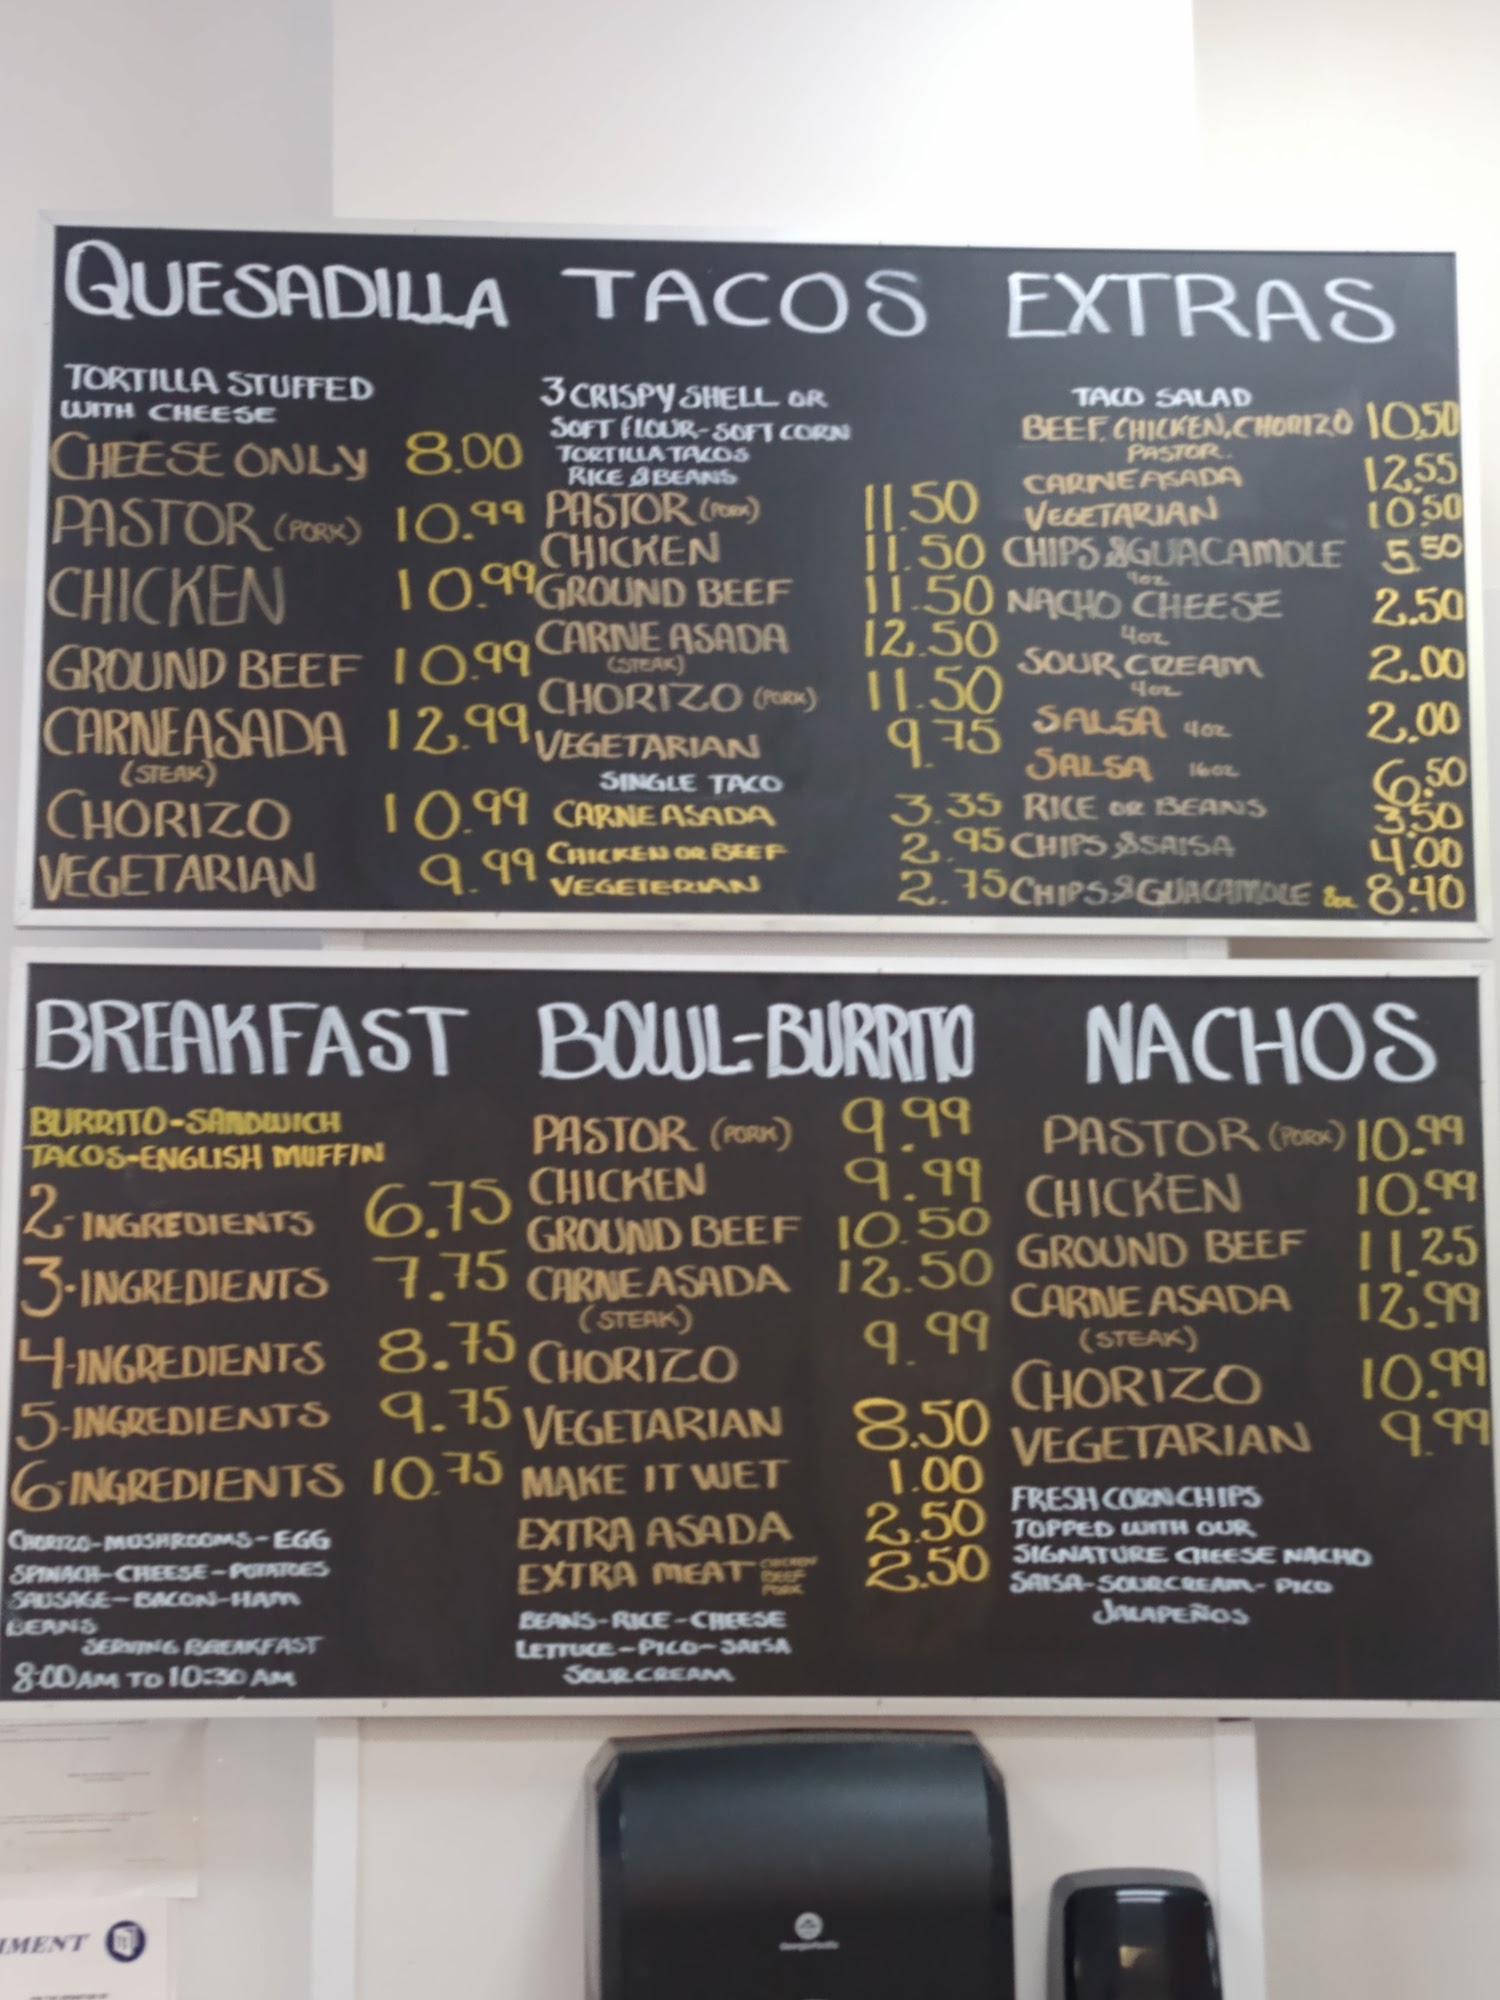 QUESADILLA
TORTILLA STUFFED
WITH CHEESE
CHEESE ONLY 8.00
PASTOR (PORK) 10.99
CHICKEN 10.99
GROUND BEEF 10.99
CARNE ASADA 12.99
(STEAK)
CHORIZO 10.99
VEGETARIAN 9.99
TACOS
3 CRISPY SHELL OR
SOFT FLOUR-SOFT CORN
TORTILLA TACOS
RICE & BEANS
PASTOR (PORK) 11.50
CHICKEN 11.50
GROUND BEEF 11.50
CARNE ASADA 12.50
(STEAK)
CHORIZO (PORK) 11.50
VEGETARIAN 9.75
SINGLE TACO
CARNE ASADA 3.35
CHICKEN OR BEEF 2.95
VEGETERIAN 2.75
EXTRAS
TACO SALAD
BEEF, CHICKEN, CHORIZO 10.50
PASTOR.
CARNE ASADA 12.55
VEGETARIAN 10.50
CHIPS & GUACAMOLE 5.50
4oz
NACHO CHEESE 2.50
4oz
SOUR CREAM 2.00
4oz
SALSA 4oz 2.00
SALSA 16oz 6.50
RICE OR BEANS 3.50
CHIPS & SALSA 4.00
CHIPS & GUACAMOLE 8oz 8.40
BREAKFAST
BURRITO-SANDWICH
TACOS-ENGLISH MUFFIN
2-INGREDIENTS 6.75
3-INGREDIENTS 7.75
4-INGREDIENTS 8.75
5-INGREDIENTS 9.75
6-INGREDIENTS 10.75
CHORIZO-MUSHROOMS-EGG
SPINACH-CHEESE-POTATOES
SAUSAGE-BACON-HAM
BEANS
SERVING BREAKFAST
8:00 AM TO 10:30 AM
BOWL-BURRITO
PASTOR (PORK) 9.99
CHICKEN 9.99
GROUND BEEF 10.50
CARNE ASADA 12.50
(STEAK)
CHORIZO 9.99
VEGETARIAN 8.50
MAKE IT WET 1.00
EXTRA ASADA 2.50
EXTRA MEAT CHICKEN BEEF PORK 2.50
BEANS-RICE-CHEESE
LETTUCE-PICO-SALSA
SOUR CREAM
NACHOS
PASTOR (PORK) 10.99
CHICKEN 10.99
GROUND BEEF 11.25
CARNE ASADA 12.99
(STEAK)
CHORIZO 10.99
VEGETARIAN 9.99
FRESH CORN CHIPS
TOPPED WITH OUR
SIGNATURE CHEESE NACHO
SALSA-SOUR CREAM-PICO
JALAPEÑOS